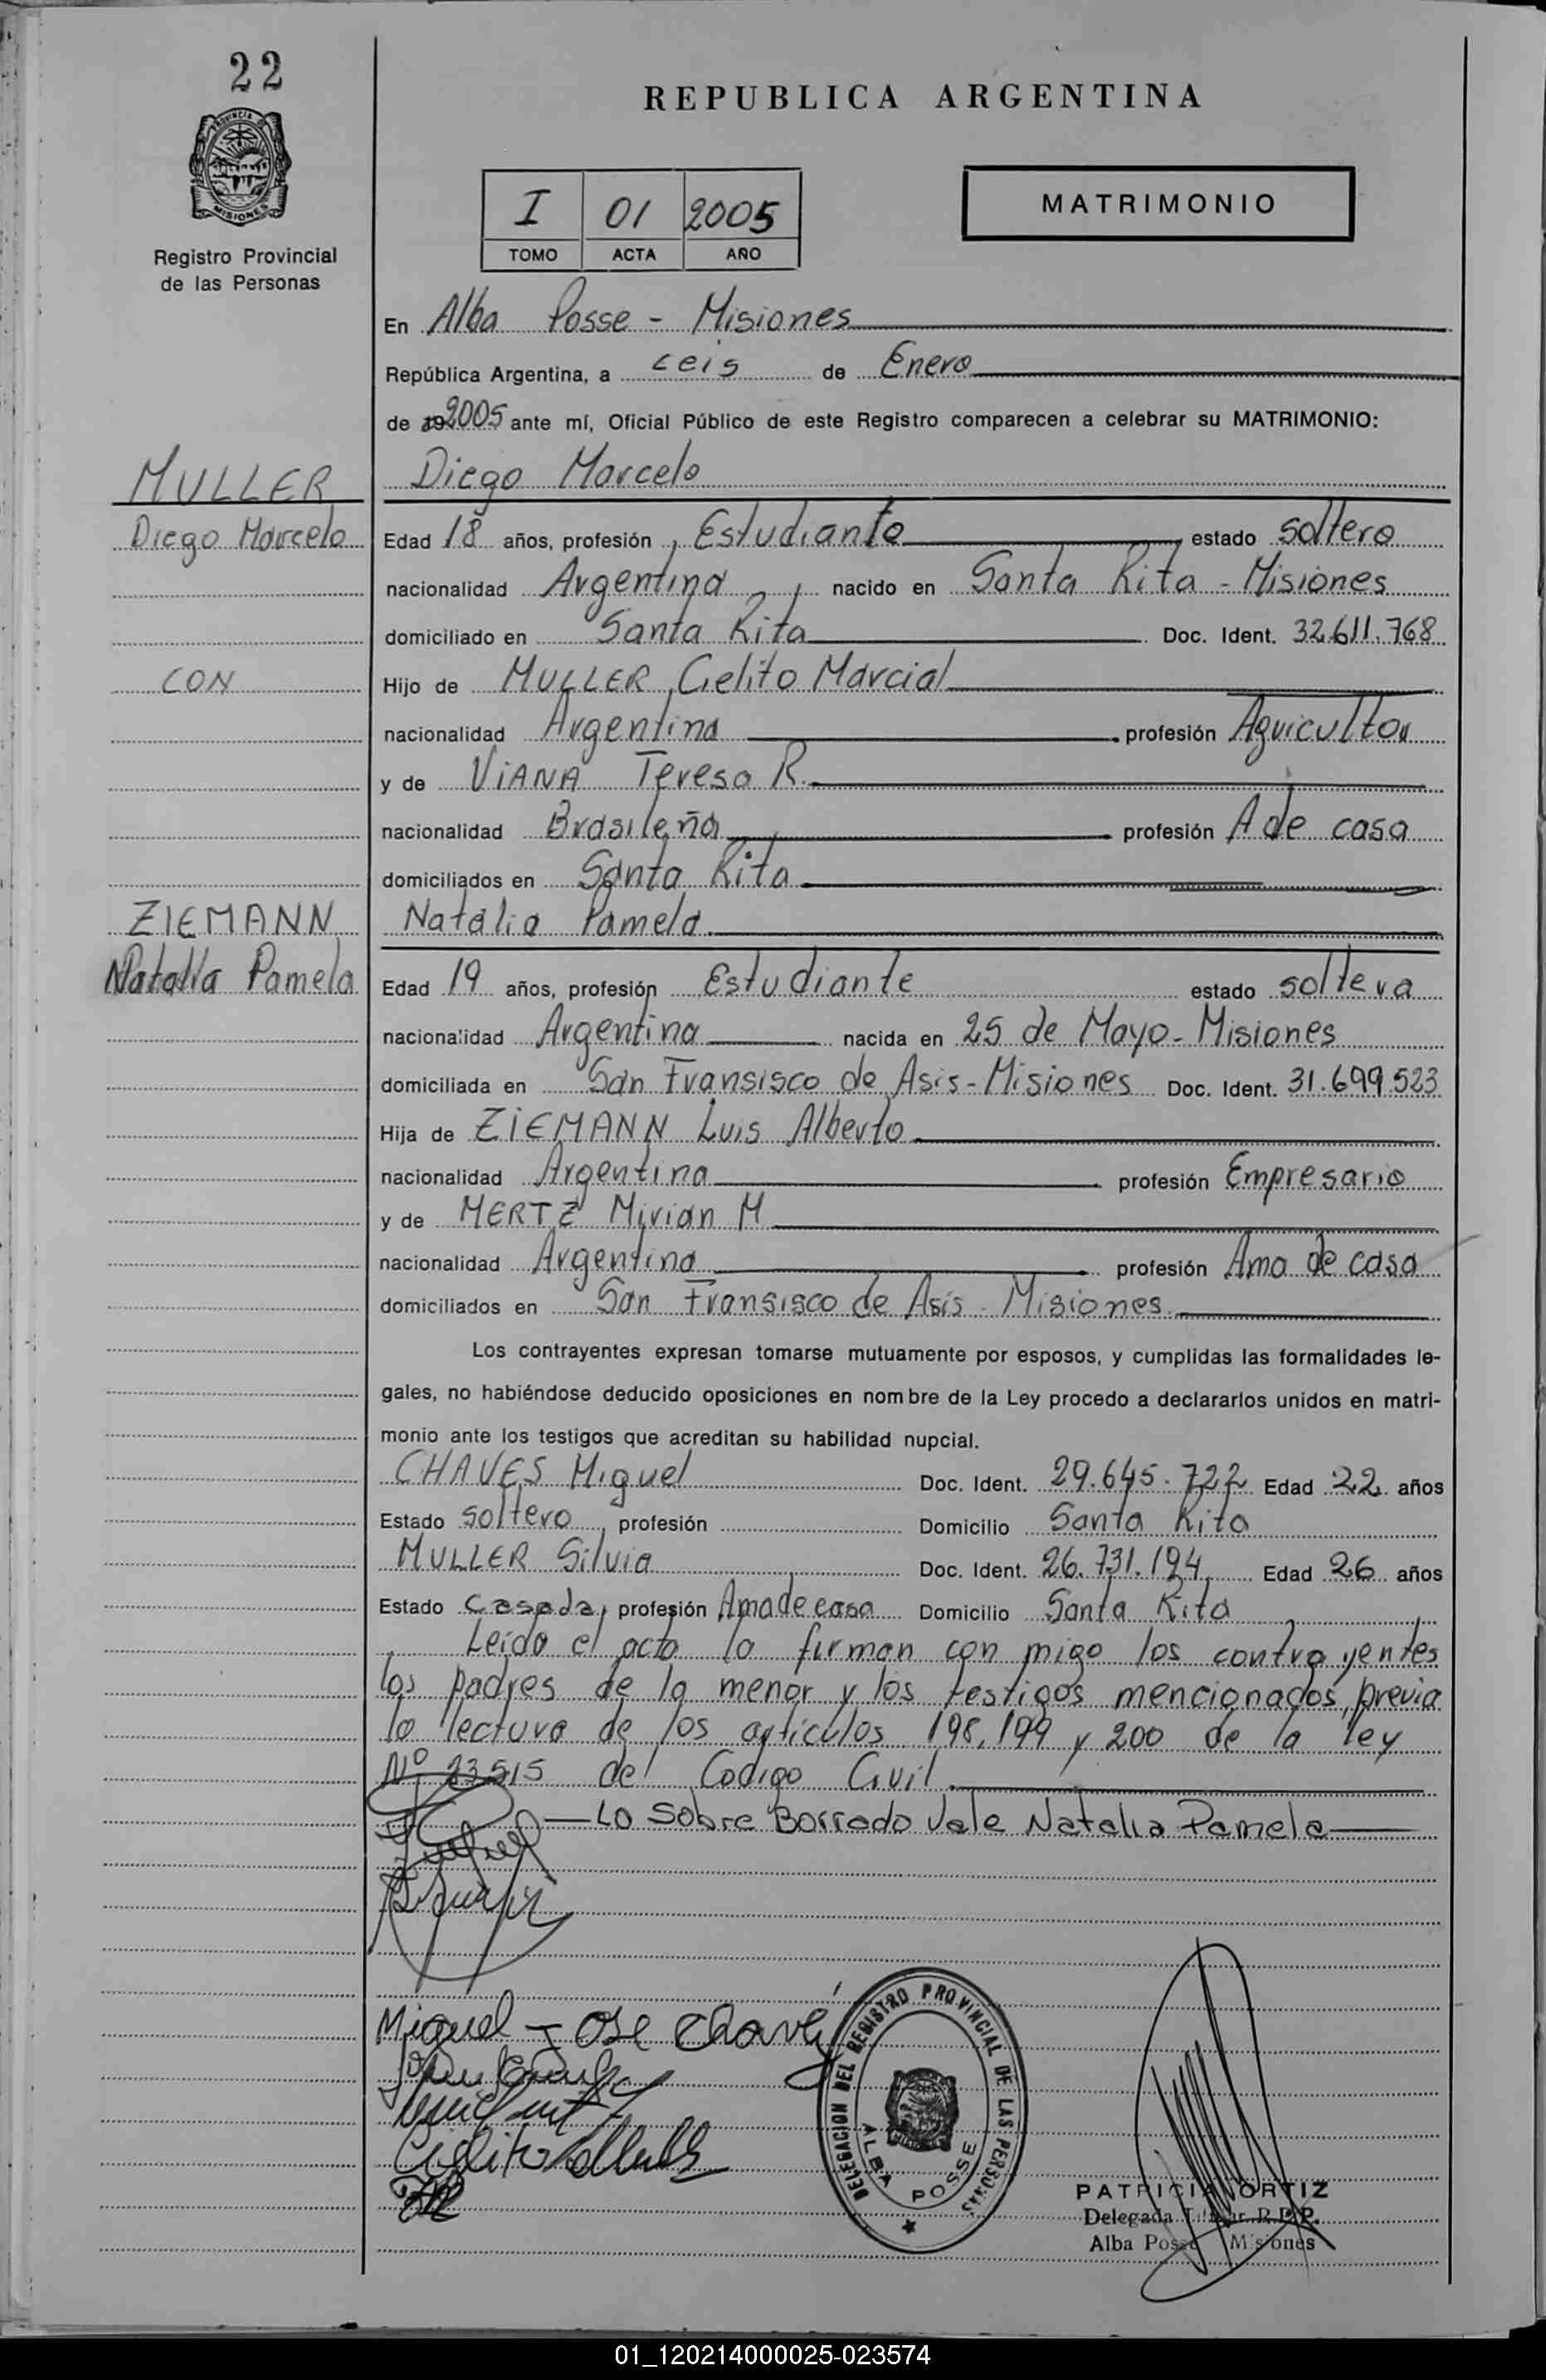 22
REPUBLICA ARGENTINA
PROVINCIA
MISIONES
Registro Provincial
de las Personas
I 01 2005
TOMO ACTA AÑO
MATRIMONIO
En Alba Posse - Misiones
República Argentina, a ceis de Enero
de 2005 ante mí, Oficial Público de este Registro comparecen a celebrar su MATRIMONIO:
MULLER Diego Marcelo
Diego Marcelo Edad 18 años, profesión Estudiante estado soltero
nacionalidad Argentina nacido en Santa Rita - Misiones
domiciliado en Santa Rita Doc. Ident. 32.611.768
CON Hijo de MULLER, Cielito Marcial
nacionalidad Argentina profesión Agricultor
y de VIANA Teresa R.
nacionalidad Brasileña profesión A de casa
domiciliados en Santa Rita
ZIEMANN Natalia Pamela
Natalia Pamela Edad 19 años, profesión Estudiante estado soltera
nacionalidad Argentina nacida en 25 de Mayo - Misiones
domiciliada en San Fransisco de Asis - Misiones Doc. Ident. 31.699.523
Hija de ZIEMANN Luis Alberto
nacionalidad Argentina profesión Empresario
y de MERTZ Mirian M
nacionalidad Argentina profesión Ama de casa
domiciliados en San Fransisco de Asís - Misiones
Los contrayentes expresan tomarse mutuamente por esposos, y cumplidas las formalidades le-
gales, no habiéndose deducido oposiciones en nombre de la Ley procedo a declararlos unidos en matri-
monio ante los testigos que acreditan su habilidad nupcial.
CHAVES Miguel Doc. Ident. 29.645.722 Edad 22 años
Estado soltero, profesión Domicilio Santa Rita
MULLER Silvia Doc. Ident. 26.731.194 Edad 26 años
Estado Casada, profesión Ama de casa Domicilio Santa Rita
Leida el acta la firman con migo los contrayentes
los padres de la menor y los testigos mencionados, previa
la lectura de los articulos 198, 199 y 200 de la ley
Nº 23515 del Codigo Civil.
Lo Sobre Borrado Vale Natalia Pamela
Miguel Jose Chavez
DELEGACION DEL REGISTRO PROVINCIAL DE LAS PERSONAS
ALBA POSSE
PATRICIA ORTIZ
Delegada Titular R.P.P.
Alba Posse Misiones
01_120214000025-023574